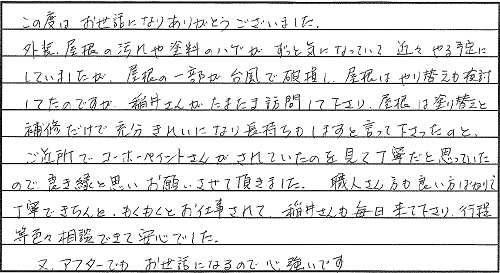 この度は お世話になりありがとうございました.
外装、屋根の汚れや塗料のハゲが ずっと気になっていて 近々 やる予定に
していましたが、屋根の一部が台風で破損し、屋根は やり替えも検討
してたのですが、稲井さんが たまたま訪問して下さり、屋根は 塗り替えと
補修だけで充分 きれいになり長持ちもしますと言って下さったのと、
ご近所で コーホーペイントさんが されていたのを見て丁寧だと思っていた
ので 良き縁と思い お願いさせて頂きました. 職人さん方も良い方ばかりで
丁寧できちんと、もくもくとお仕事されて、稲井さんも毎日 来て下さり、行程
等色々相談できて安心でした.
又、アフターでも お世話になるので心強いです